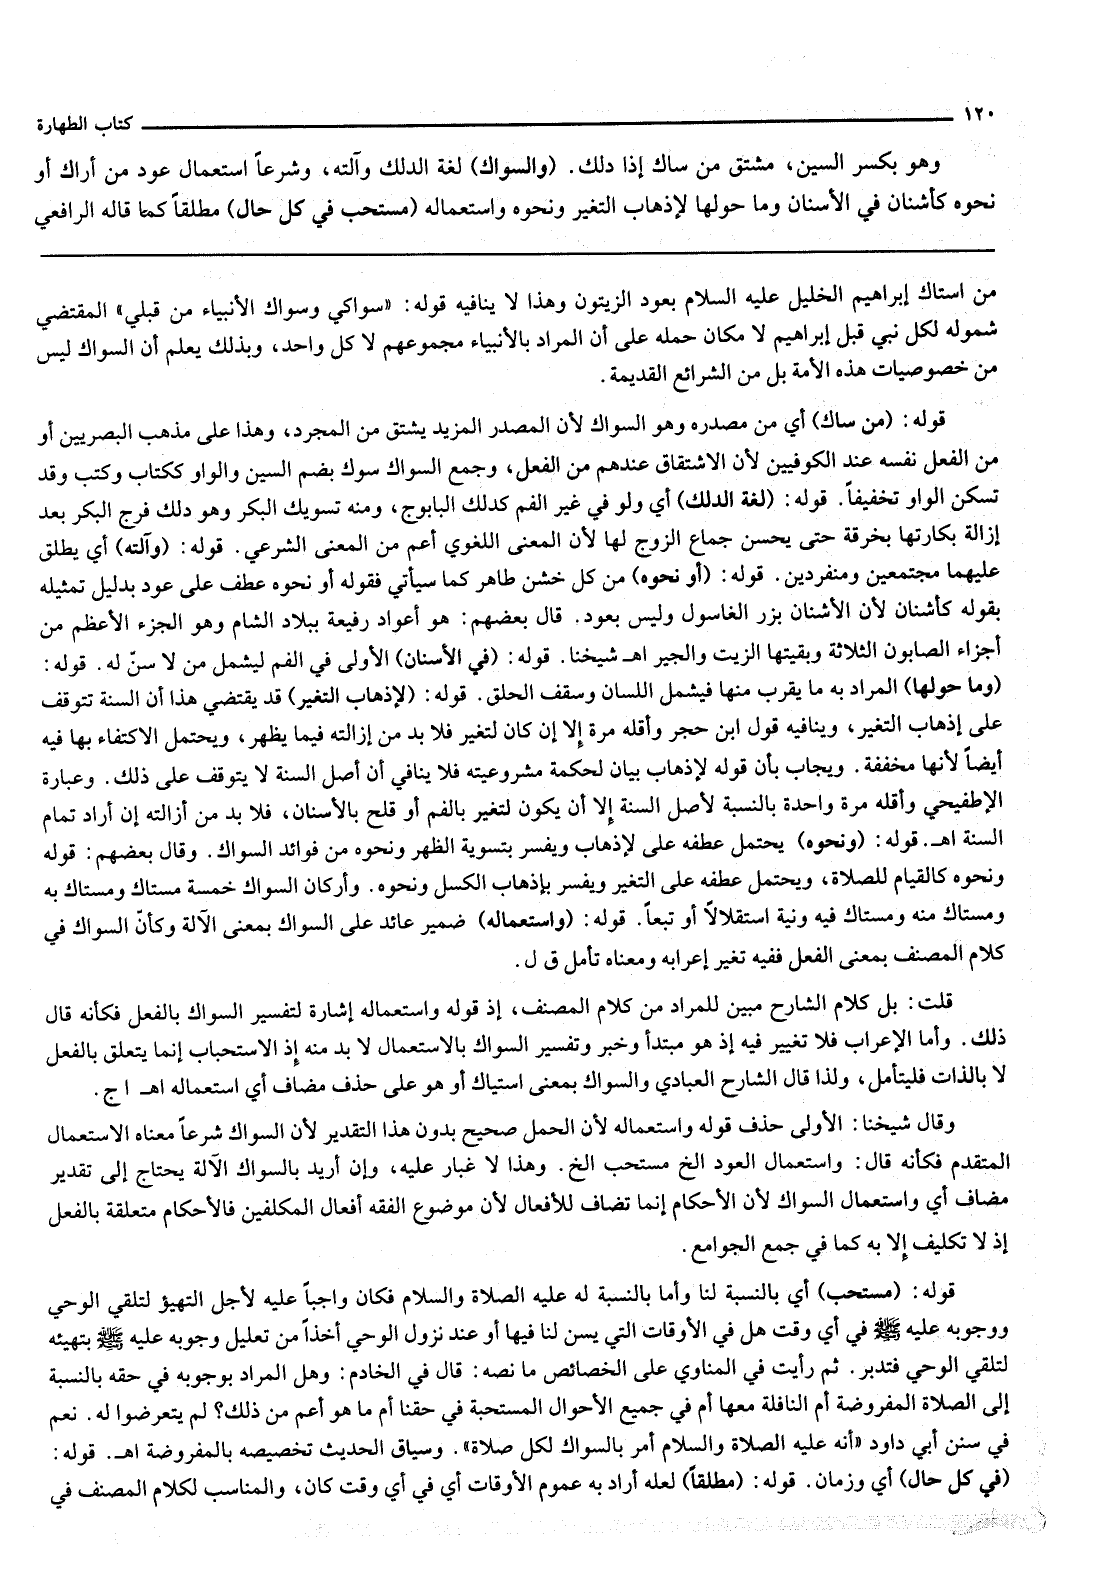 ١٢٠ كتاب الطهارة
وهو بكسر السين، مشتق من ساك إذا دلك. (والسواك) لغة الدلك وآلته، وشرعاً استعمال عود من أراك أو
نحوه كأشنان في الأسنان وما حولها لإذهاب التغير ونحوه واستعماله (مستحب في كل حال) مطلقاً كما قاله الرافعي
من استاك إبراهيم الخليل عليه السلام بعود الزيتون وهذا لا ينافيه قوله: «سواكي وسواك الأنبياء من قبلي» المقتضي
شموله لكل نبي قبل إبراهيم لا مكان حمله على أن المراد بالأنبياء مجموعهم لا كل واحد، وبذلك يعلم أن السواك ليس
من خصوصيات هذه الأمة بل من الشرائع القديمة.
قوله: (من ساك) أي من مصدره وهو السواك لأن المصدر المزيد يشتق من المجرد، وهذا على مذهب البصريين أو
من الفعل نفسه عند الكوفيين لأن الاشتقاق عندهم من الفعل، وجمع السواك سوك بضم السين والواو ككتاب وكتب وقد
تسكن الواو تخفيفاً. قوله: (لغة الدلك) أي ولو في غير الفم كدلك البابوج، ومنه تسويك البكر وهو دلك فرج البكر بعد
إزالة بكارتها بخرقة حتى يحسن جماع الزوج لها لأن المعنى اللغوي أعم من المعنى الشرعي. قوله: (وآلته) أي يطلق
عليهما مجتمعين ومنفردين. قوله: (أو نحوه) من كل خشن طاهر كما سيأتي فقوله أو نحوه عطف على عود بدليل تمثيله
بقوله كأشنان لأن الأشنان بزر الغاسول وليس بعود. قال بعضهم: هو أعواد رفيعة ببلاد الشام وهو الجزء الأعظم من
أجزاء الصابون الثلاثة وبقيتها الزيت والجير اهـ شيخنا. قوله: (في الأسنان) الأولى في الفم ليشمل من لا سنّ له. قوله:
(وما حولها) المراد به ما يقرب منها فيشمل اللسان وسقف الحلق. قوله: (لإذهاب التغير) قد يقتضي هذا أن السنة تتوقف
على إذهاب التغير، وينافيه قول ابن حجر وأقله مرة إلا إن كان لتغير فلا بد من إزالته فيما يظهر، ويحتمل الاكتفاء بها فيه
أيضاً لأنها مخففة. ويجاب بأن قوله لإذهاب بيان لحكمة مشروعيته فلا ينافي أن أصل السنة لا يتوقف على ذلك. وعبارة
الإطفيحي وأقله مرة واحدة بالنسبة لأصل السنة إلا أن يكون لتغير بالفم أو قلح بالأسنان، فلا بد من أزالته إن أراد تمام
السنة اهـ. قوله: (ونحوه) يحتمل عطفه على لإذهاب ويفسر بتسوية الظهر ونحوه من فوائد السواك. وقال بعضهم: قوله
ونحوه كالقيام للصلاة، ويحتمل عطفه على التغير ويفسر بإذهاب الكسل ونحوه. وأركان السواك خمسة مستاك ومستاك به
ومستاك منه ومستاك فيه ونية استقلالاً أو تبعاً. قوله: (واستعماله) ضمير عائد على السواك بمعنى الآلة وكأنّ السواك في
كلام المصنف بمعنى الفعل ففيه تغير إعرابه ومعناه تأمل ق ل.
قلت: بل كلام الشارح مبين للمراد من كلام المصنف، إذ قوله واستعماله إشارة لتفسير السواك بالفعل فكأنه قال
ذلك. وأما الإعراب فلا تغيير فيه إذ هو مبتدأ وخبر وتفسير السواك بالاستعمال لا بد منه إذ الاستحباب إنما يتعلق بالفعل
لا بالذات فليتأمل، ولذا قال الشارح العبادي والسواك بمعنى استياك أو هو على حذف مضاف أي استعماله اهـ ا ج.
وقال شيخنا: الأولى حذف قوله واستعماله لأن الحمل صحيح بدون هذا التقدير لأن السواك شرعاً معناه الاستعمال
المتقدم فكأنه قال: واستعمال العود الخ مستحب الخ. وهذا لا غبار عليه، وإن أريد بالسواك الآلة يحتاج إلى تقدير
مضاف أي واستعمال السواك لأن الأحكام إنما تضاف للأفعال لأن موضوع الفقه أفعال المكلفين فالأحكام متعلقة بالفعل
إذ لا تكليف إلا به كما في جمع الجوامع.
قوله: (مستحب) أي بالنسبة لنا وأما بالنسبة له عليه الصلاة والسلام فكان واجباً عليه لأجل التهيؤ لتلقي الوحي
ووجوبه عليه ﷺ في أي وقت هل في الأوقات التي يسن لنا فيها أو عند نزول الوحي أخذاً من تعليل وجوبه عليه ﷺ بتهيئه
لتلقي الوحي فتدبر. ثم رأيت في المناوي على الخصائص ما نصه: قال في الخادم: وهل المراد بوجوبه في حقه بالنسبة
إلى الصلاة المفروضة أم النافلة معها أم في جميع الأحوال المستحبة في حقنا أم ما هو أعم من ذلك؟ لم يتعرضوا له. نعم
في سنن أبي داود «أنه عليه الصلاة والسلام أمر بالسواك لكل صلاة». وسياق الحديث تخصيصه بالمفروضة اهـ. قوله:
(في كل حال) أي وزمان. قوله: (مطلقاً) لعله أراد به عموم الأوقات أي في أي وقت كان، والمناسب لكلام المصنف في